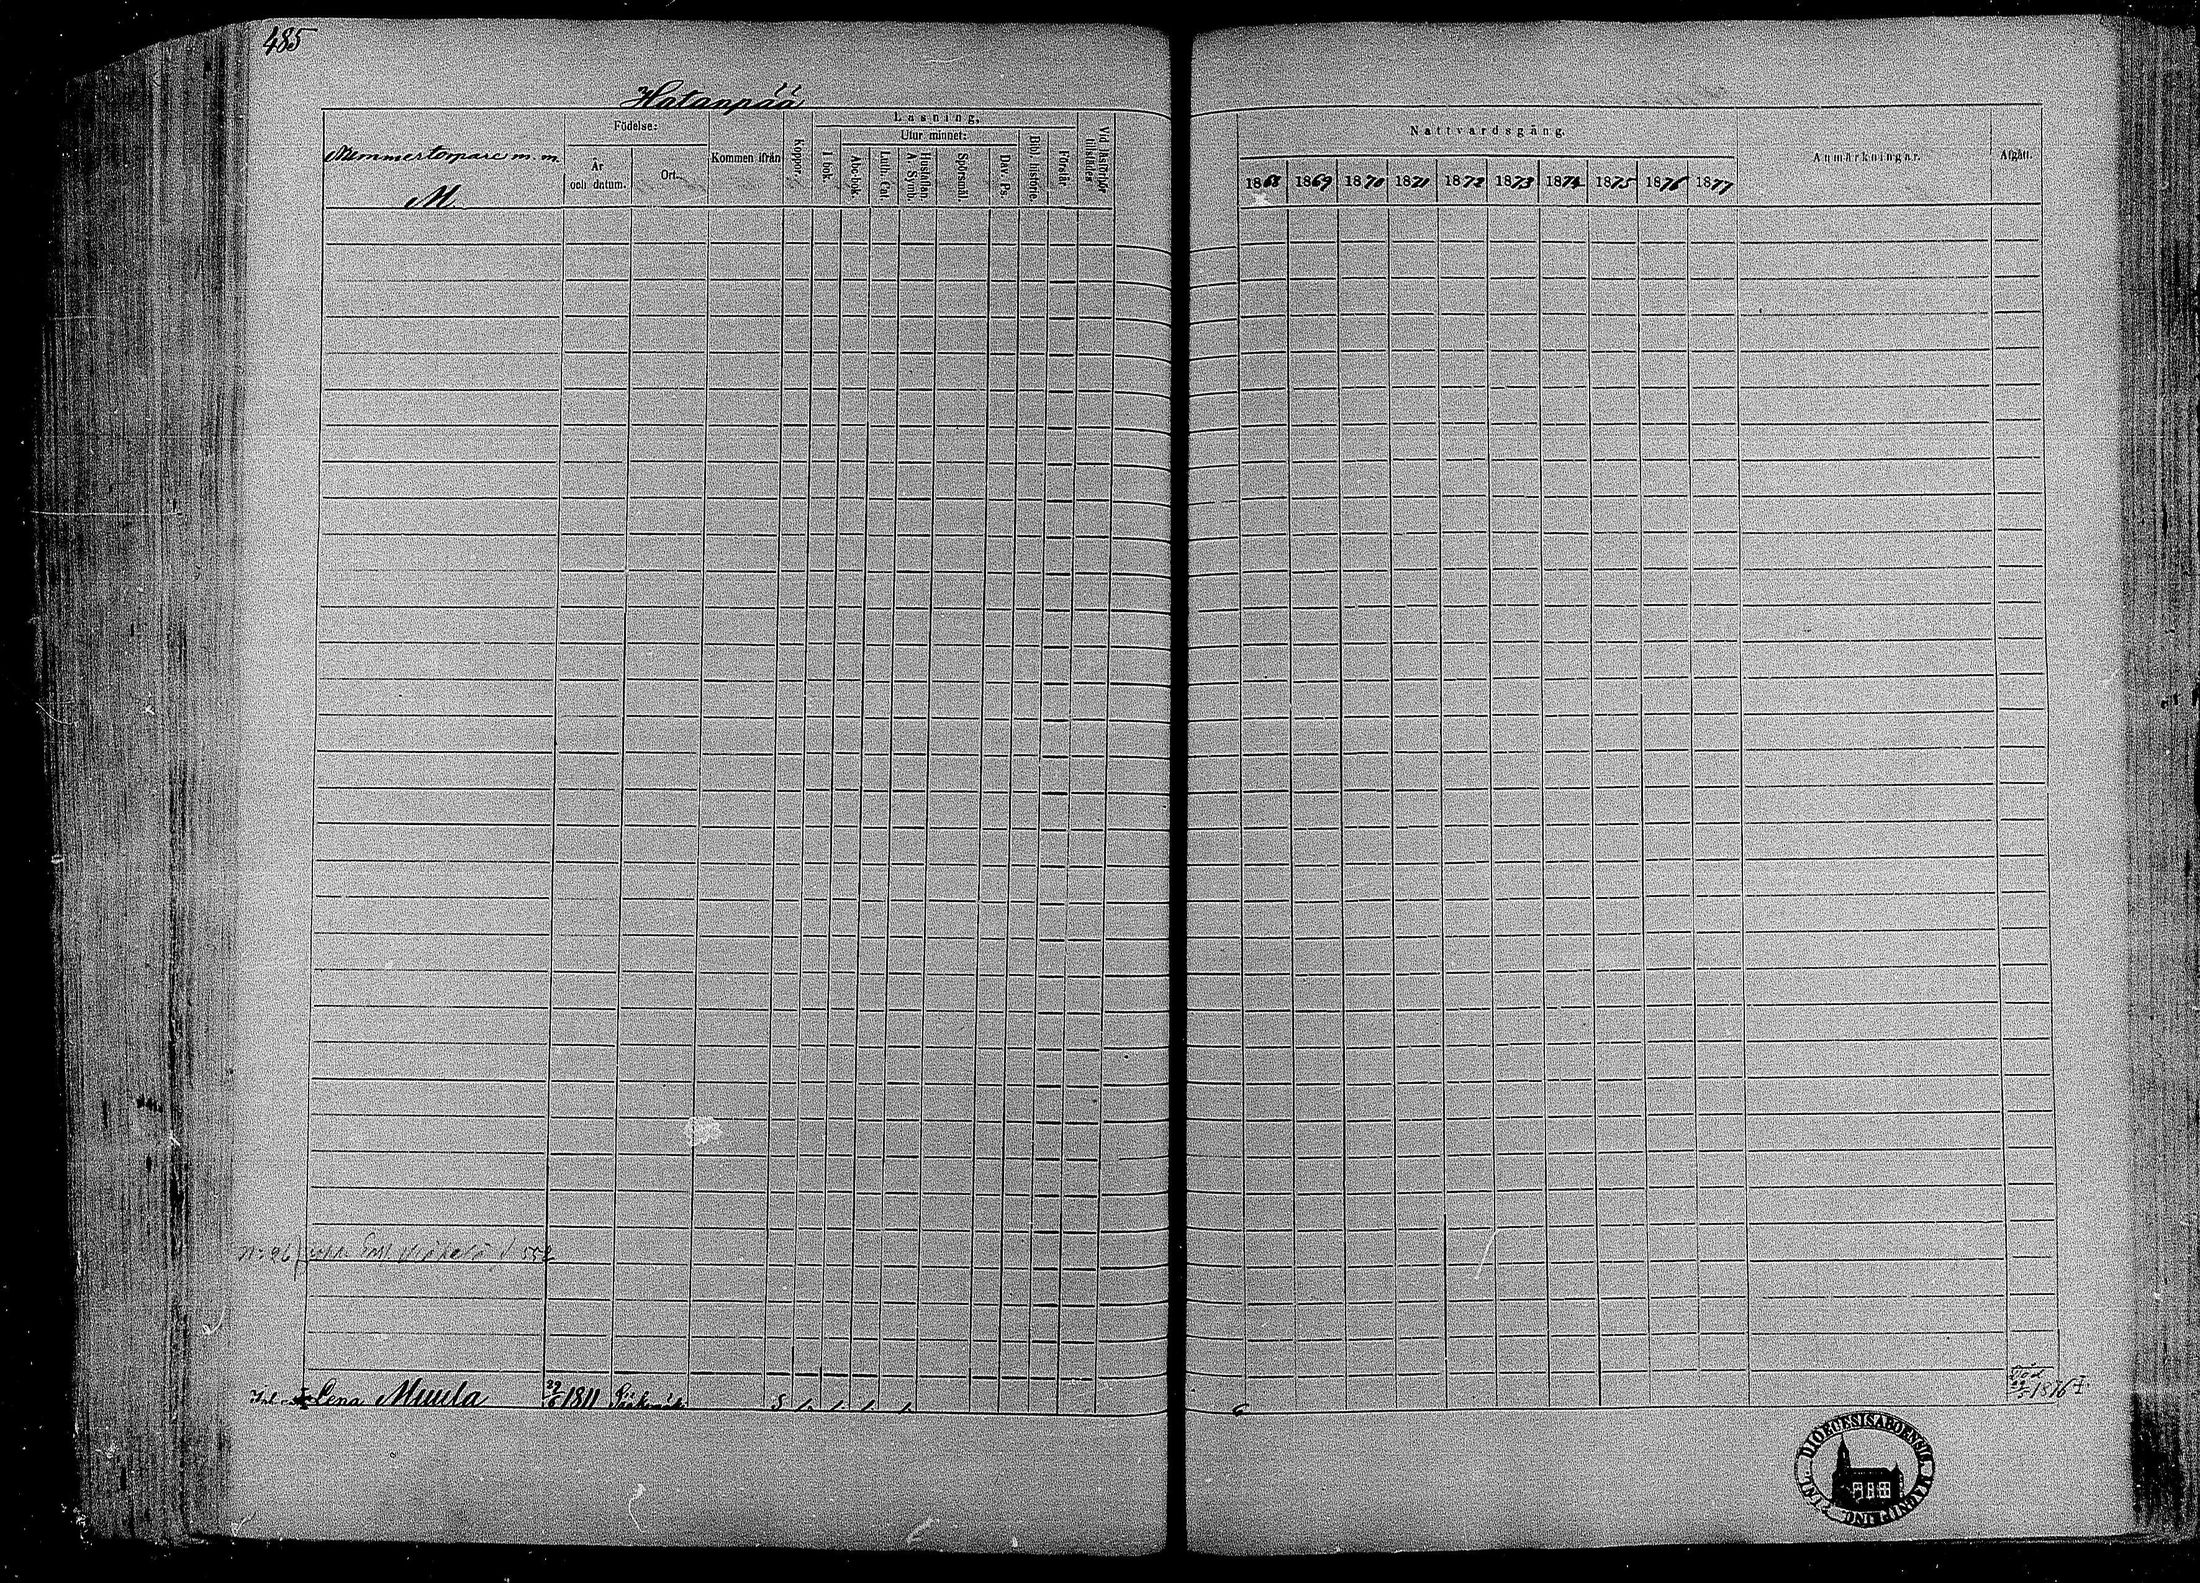 485
Hatanpää
Nummertorpare m. m.
M.
Födelse:
År och datum.
Ort.
Kommen ifrån
Koppor.
Läsning,
I bok.
Utur minnet:
Abc-bok.
Luth. Cat.
Hustaflan. A. Symb.
Spörsmål.
Dav. Ps.
Bibl. historie.
Förstår.
Vid läsförhör tillstädes
Nattvardsgång.
1868 1869 1870 1871 1872 1873 1874 1875 1876 1877
Anmärkningar.
Afgått.
N:26
Inh. Lena Muula 1811 6
Död 1876
FINL. DIOECESIS ABOENSIS MAGNI PRINC.